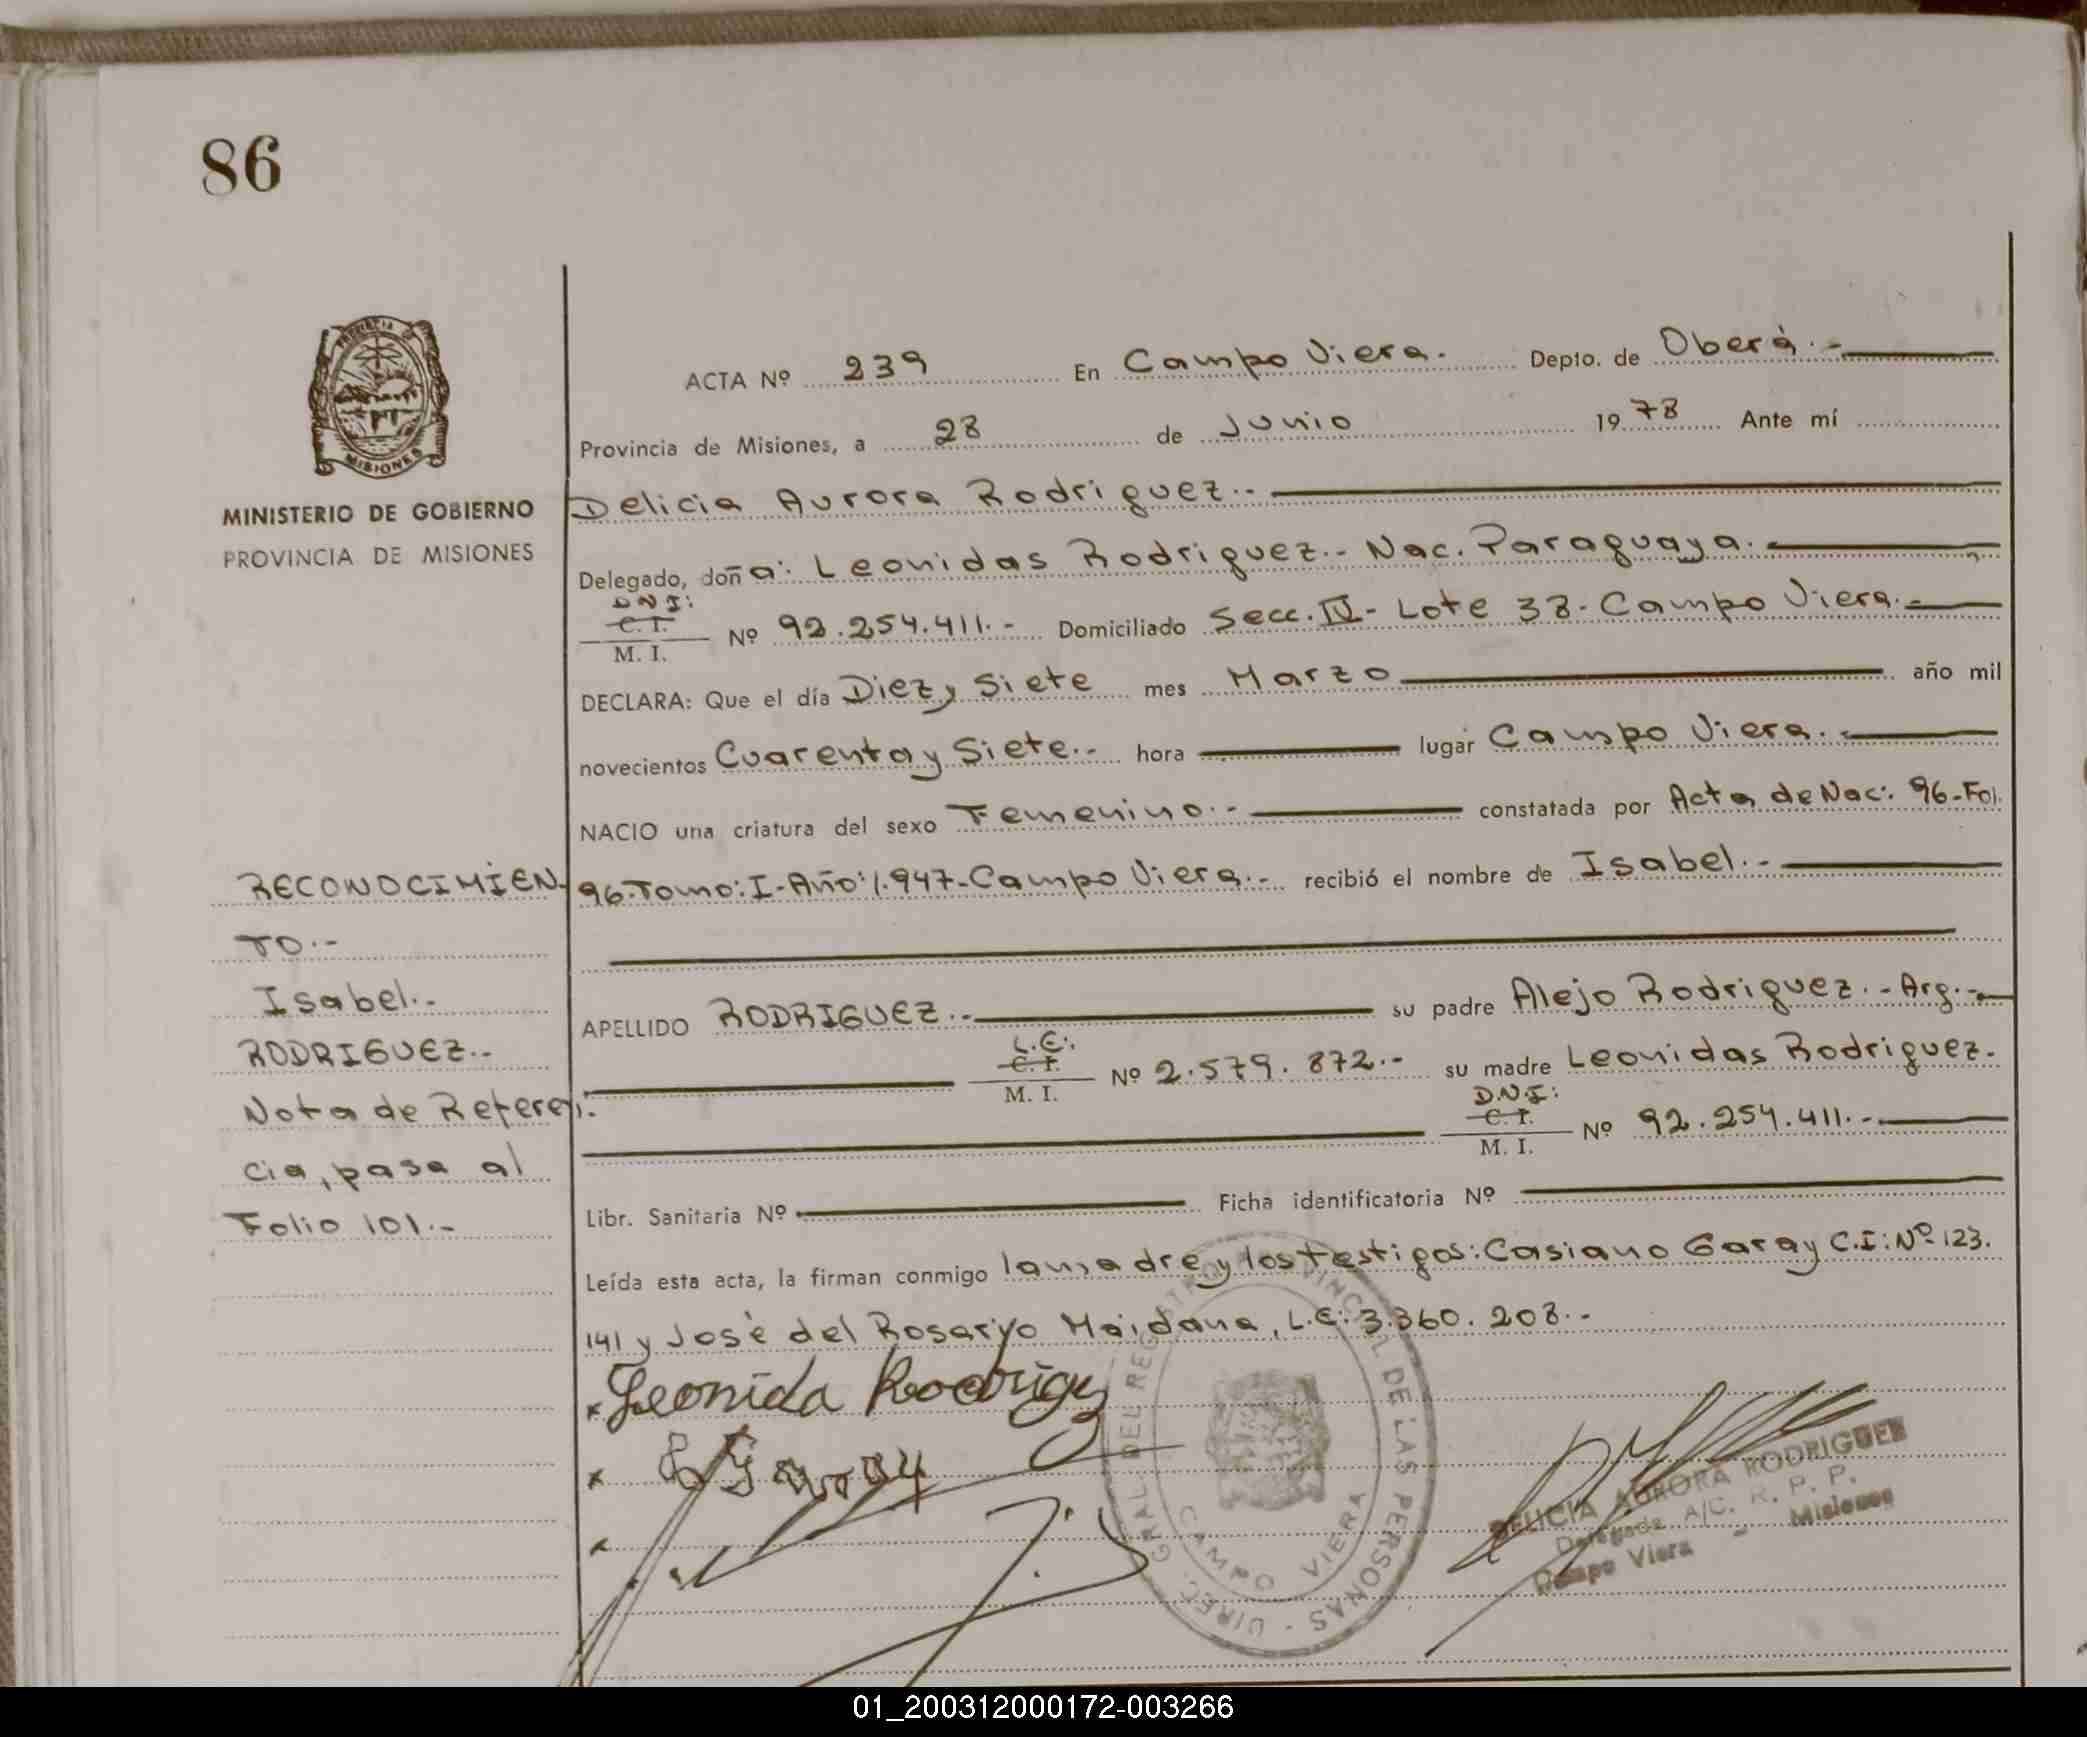 86
PROVINCIA DE
MISIONES
MINISTERIO DE GOBIERNO
PROVINCIA DE MISIONES
ACTA Nº 239 En Campo Viera.- Depto. de Oberá.-
Provincia de Misiones, a 28 de Junio 1978 Ante mí
Delicia Aurora Rodriguez.-
Delegado, doña: Leonidas Rodriguez.- Nac. Paraguaya.-
D.N.I:
C. I.
M. I.
Nº 92.254.411.- Domiciliado Secc. IV- Lote 38- Campo Viera.-
DECLARA: Que el día Diez y Siete mes Marzo año mil
novecientos Cuarenta y Siete.- hora lugar Campo Viera.-
NACIO una criatura del sexo Femenino.- constatada por Acta de Nac: 96-Fol.
96-Tomo: I-Año: 1.947-Campo Viera.- recibió el nombre de Isabel.-
APELLIDO RODRIGUEZ.- su padre Alejo Rodriguez.- Arg.-
L.E:.
C. I.
M. I.
Nº 2.579.872.- su madre Leonidas Rodriguez.
D.N.I:
C. I.
M. I.
Nº 92.254.411.-
Libr. Sanitaria Nº Ficha identificatoria Nº
Leída esta acta, la firman conmigo la madre y los testigos: Casiano Garay C.I: Nº 123.
141 y José del Rosaryo Maidana, L.E: 3.360.208.-
RECONOCIMIEN-
TO.-
Isabel.-
RODRIGUEZ.-
Nota de Referen.
cia, pasa al
Folio 101.-
x Leonida Rodrigz
x Garay
DIREC. GRAL DEL REGISTRO PROVINCIAL DE LAS PERSONAS -
CAMPO VIERA
DELICIA AURORA RODRIGUEZ
Delegada A/C. R. P. P.
Campo Viera - Misiones
01_200312000172-003266